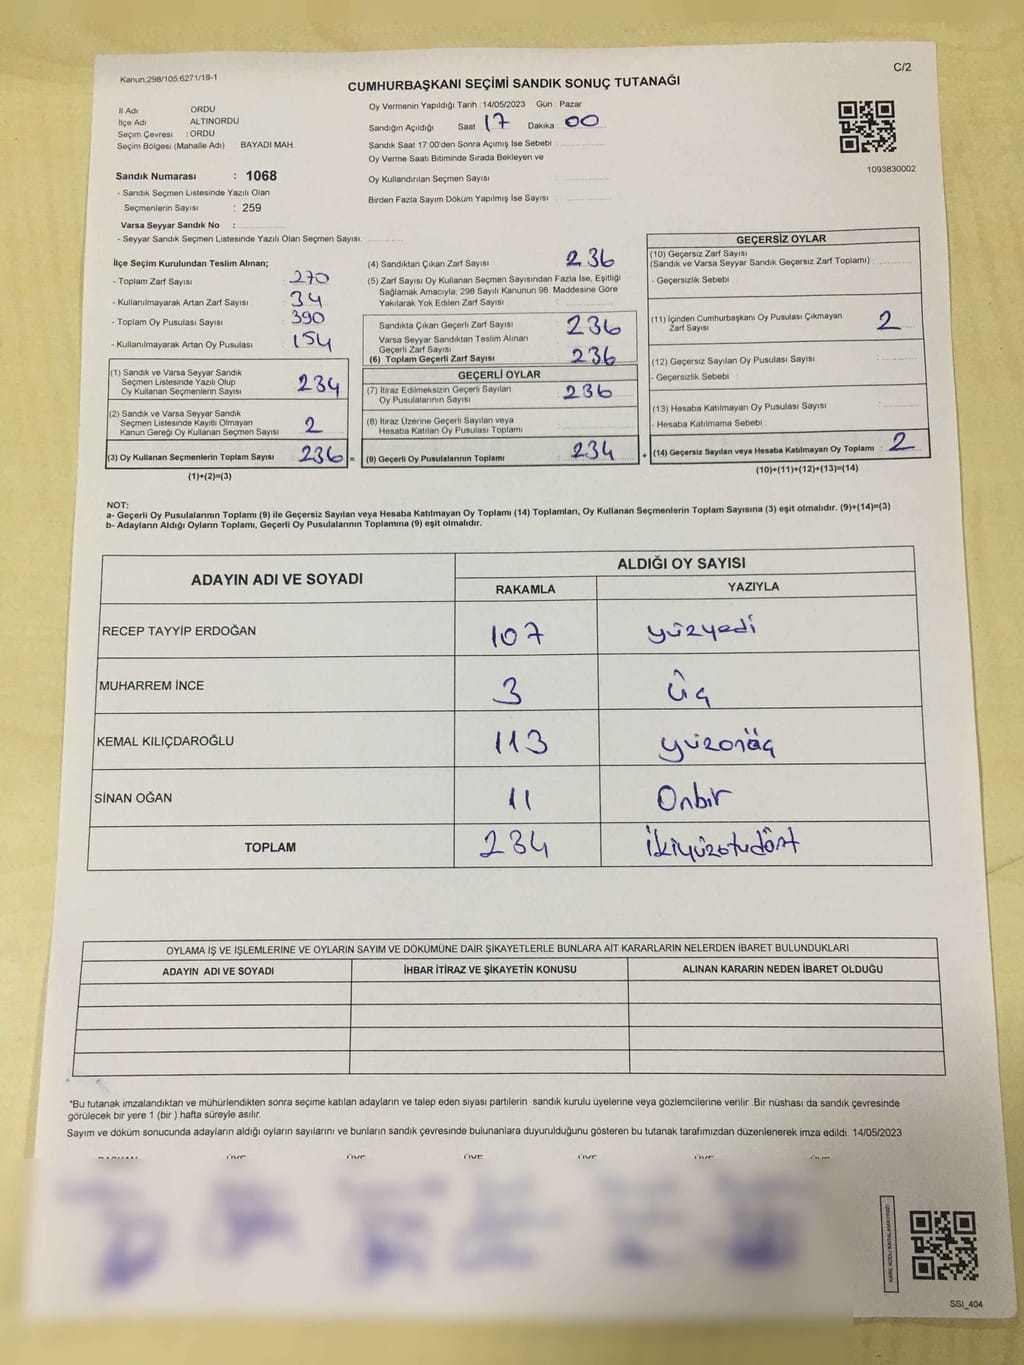 Kanun;298/105;6271/18-1
C/2
CUMHURBAŞKANI SEÇİMİ SANDIK SONUÇ TUTANAĞI
İl Adı ORDU
İlçe Adı ALTINORDU
Seçim Çevresi : ORDU
Seçim Bölgesi (Mahalle Adı) BAYADI MAH.
Oy Vermenin Yapıldığı Tarih : 14/05/2023 Gün : Pazar
Sandığın Açıldığı Saat 17 Dakika : 00
Sandık Saat 17.00'den Sonra Açımış İse Sebebi
Oy Verme Saati Bitiminde Sırada Bekleyen ve
Oy Kullandırılan Seçmen Sayısı
Birden Fazla Sayım Döküm Yapılmış İse Sayısı
1093830002
Sandık Numarası : 1068
- Sandık Seçmen Listesinde Yazılı Olan
Seçmenlerin Sayısı : 259
Varsa Seyyar Sandık No :
- Seyyar Sandık Seçmen Listesinde Yazılı Olan Seçmen Sayısı:
İlçe Seçim Kurulundan Teslim Alınan;
- Toplam Zarf Sayısı : 270
- Kullanılmayarak Artan Zarf Sayısı : 34
- Toplam Oy Pusulası Sayısı : 390
- Kullanılmayarak Artan Oy Pusulası : 154
(1) Sandık ve Varsa Seyyar Sandık
Seçmen Listesinde Yazılı Olup
Oy Kullanan Seçmenlerin Sayısı : 234
(2) Sandık ve Varsa Seyyar Sandık
Seçmen Listesinde Kayıtlı Olmayan
Kanun Gereği Oy Kullanan Seçmen Sayısı : 2
(3) Oy Kullanan Seçmenlerin Toplam Sayısı : 236 =
(1)+(2)=(3)
(4) Sandıktan Çıkan Zarf Sayısı : 236
(5) Zarf Sayısı Oy Kullanan Seçmen Sayısından Fazla İse, Eşitliği
Sağlamak Amacıyla; 298 Sayılı Kanunun 98. Maddesine Göre
Yakılarak Yok Edilen Zarf Sayısı :
Sandıkta Çıkan Geçerli Zarf Sayısı : 236
Varsa Seyyar Sandıktan Teslim Alınan
Geçerli Zarf Sayısı :
(6) Toplam Geçerli Zarf Sayısı : 236
GEÇERLİ OYLAR
(7) İtiraz Edilmeksizin Geçerli Sayılan
Oy Pusulalarının Sayısı : 236
(8) İtiraz Üzerine Geçerli Sayılan veya
Hesaba Katılan Oy Pusulası Toplamı
(9) Geçerli Oy Pusulalarının Toplamı : 234 +
GEÇERSİZ OYLAR
(10) Geçersiz Zarf Sayısı
(Sandık ve Varsa Seyyar Sandık Geçersiz Zarf Toplamı) :
- Geçersizlik Sebebi :
(11) İçinden Cumhurbaşkanı Oy Pusulası Çıkmayan
Zarf Sayısı : 2
(12) Geçersiz Sayılan Oy Pusulası Sayısı :
- Geçersizlik Sebebi :
(13) Hesaba Katılmayan Oy Pusulası Sayısı :
- Hesaba Katılmama Sebebi :
(14) Geçersiz Sayılan veya Hesaba Katılmayan Oy Toplamı : 2
(10)+(11)+(12)+(13)=(14)
NOT:
a- Geçerli Oy Pusulalarının Toplamı (9) ile Geçersiz Sayılan veya Hesaba Katılmayan Oy Toplamı (14) Toplamları, Oy Kullanan Seçmenlerin Toplam Sayısına (3) eşit olmalıdır. (9)+(14)=(3)
b- Adayların Aldığı Oyların Toplamı, Geçerli Oy Pusulalarının Toplamına (9) eşit olmalıdır.
ADAYIN ADI VE SOYADI ALDIĞI OY SAYISI
RAKAMLA YAZIYLA
RECEP TAYYİP ERDOĞAN 107 yüzyedi
MUHARREM İNCE 3 üç
KEMAL KILIÇDAROĞLU 113 yüzonüç
SİNAN OĞAN 11 Onbir
TOPLAM 234 ikiyüzotudört
OYLAMA İŞ VE İŞLEMLERİNE VE OYLARIN SAYIM VE DÖKÜMÜNE DAİR ŞİKAYETLERLE BUNLARA AİT KARARLARIN NELERDEN İBARET BULUNDUKLARI
ADAYIN ADI VE SOYADI İHBAR İTİRAZ VE ŞİKAYETİN KONUSU ALINAN KARARIN NEDEN İBARET OLDUĞU
*Bu tutanak imzalandıktan ve mühürlendikten sonra seçime katılan adayların ve talep eden siyasi partilerin sandık kurulu üyelerine veya gözlemcilerine verilir. Bir nüshası da sandık çevresinde
görülecek bir yere 1 (bir ) hafta süreyle asılır.
Sayım ve döküm sonucunda adayların aldığı oyların sayılarını ve bunların sandık çevresinde bulunanlara duyurulduğunu gösteren bu tutanak tarafımızdan düzenlenerek imza edildi. 14/05/2023
SSİ_404